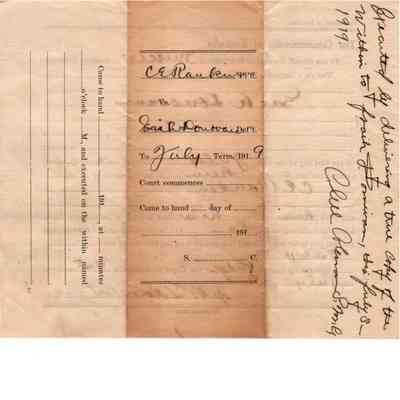 Came to hand 191 , at minutes
o'clock M., and executed on the within named
C E Rankin Pl'ff.
vs
Donovan, Def't.
To July Term, 191 9
Court commences
Came to hand day of
191
S. C
Executed by delivering a true copy of the
within to Donovan, this July 8-
1919